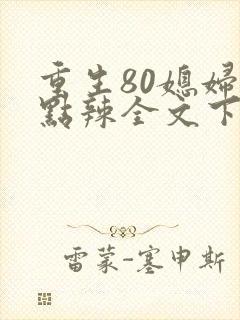 重生80媳婦
點辣全文下
雷蒙-塞申斯